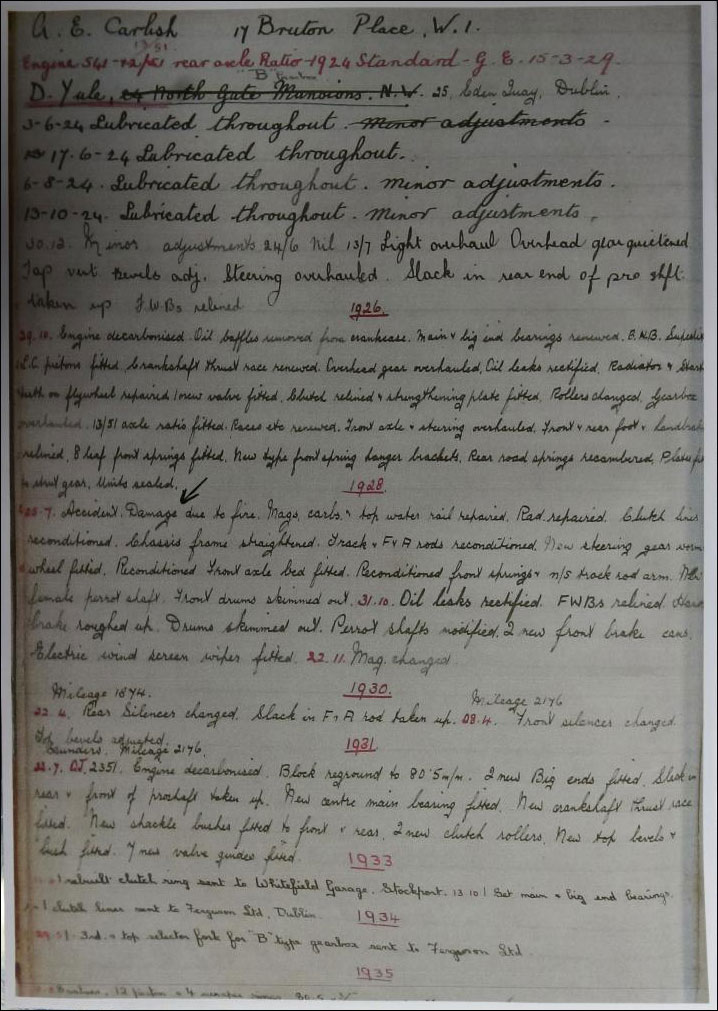 A. E. Carlish 17 Bruton Place, W.1.
13/51
Engine 541 rear axle Ratio - 1924 Standard - G.E. 15-3-29.
"B"
D. Yule, 24 North Gate Mansions. N.W. 25, Eden Quay, Dublin.
3-6-24 Lubricated throughout. Minor adjustments -
17-6-24 Lubricated throughout.
6-8-24. Lubricated throughout. minor adjustments.
13-10-24. Lubricated throughout. Minor adjustments.
30.12. Minor adjustments 24/6 Nil 13/7 Light overhaul Overhead gear quietened
Top vert Bevels adj. Steering overhauled. Slack in rear end of pro shft
taken up F.W.Bs relined
1926.
29.10. Engine decarbonised. Oil baffles removed from crankcase. Main & big end bearings renewed. B.H.B.
L.C. pistons fitted. Crankshaft thrust race renewed. Overhead gear overhauled, Oil leaks rectified. Radiator &
teeth on flywheel repaired 1 new valve fitted. Clutch relined & strengthening plate fitted. Rollers changed. Gearbox
overhauled. 13/51 axle ratio fitted. Races etc renewed. Front axle & steering overhauled. Front & rear foot &
relined. 8 leaf front springs fitted. New type front spring hanger brackets. Rear road springs recambered.
to strut gear. Units sealed.
1928.
25.7. Accident. Damage due to fire. Mags, carbs. & top water rail repaired. Rad. repaired. Clutch
reconditioned. Chassis frame straightened. Track & F & A rods reconditioned New steering gear worm
wheel fitted. Reconditioned Front axle bed fitted. Reconditioned front springs & n/s track rod arm. New
female perrot shaft. Front drums skimmed out. 31.10. Oil leaks rectified. FWBs relined. Hand
brake roughed up. Drums skimmed out. Perrot shafts modified. 2 new front brake cams.
Electric wind screen wiper fitted. 22.11. Mag. changed
1930.
Mileage 1874. Mileage 2176
22.4. Rear Silencer changed. Slack in F & A rod taken up. 08.4. Front silencer changed
Top bevels adjusted.
1931.
Saunders. Mileage 2176.
22.7. OJ 2351. Engine decarbonised. Block reground to 80.5m/m. 2 new Big ends fitted. Slack in
rear & front of proshaft taken up. New centre main bearing fitted. New crankshaft thrust race
fitted. New shackle bushes fitted to front & rear. 2 new clutch rollers. New top bevels &
bush fitted. 7 new valve guides fitted.
1933
1 rebuilt clutch ring sent to Whitefield Garage. Stockport. 13 10 1 Set main & big end bearings.
1 clutch liner sent to Ferguson Ltd, Dublin.
1934
29.5 1. 3rd. & top selector fork for "B" type gearbox sent to Ferguson Ltd
1935